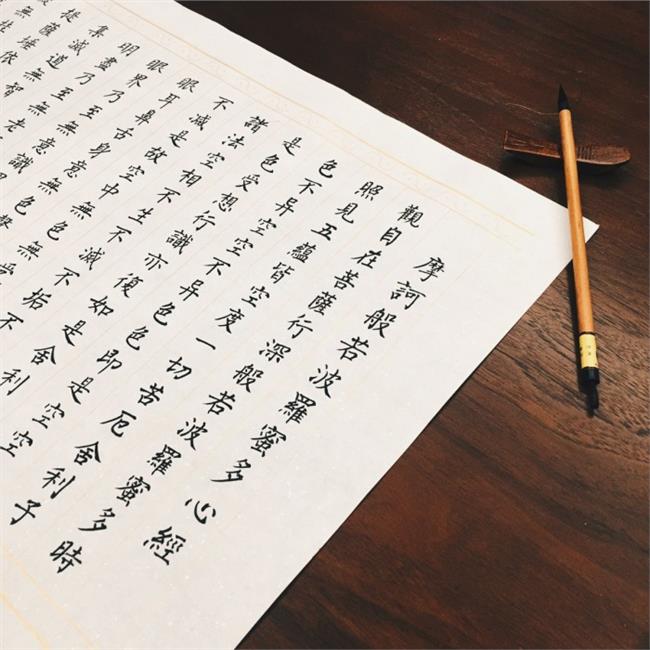 摩訶般若波羅蜜多心經
觀自在菩薩行深般若波羅蜜多時
照見五蘊皆空度一切苦厄舍利子
色不异空空不异色色即是空空
是色受想行識亦復如是舍利
諸法空相不生不滅不垢不
不減是故空中無色無受
眼耳鼻舌身意無色聲
眼界乃至無意識界
明盡乃至無老
集滅道無智
提薩埵依